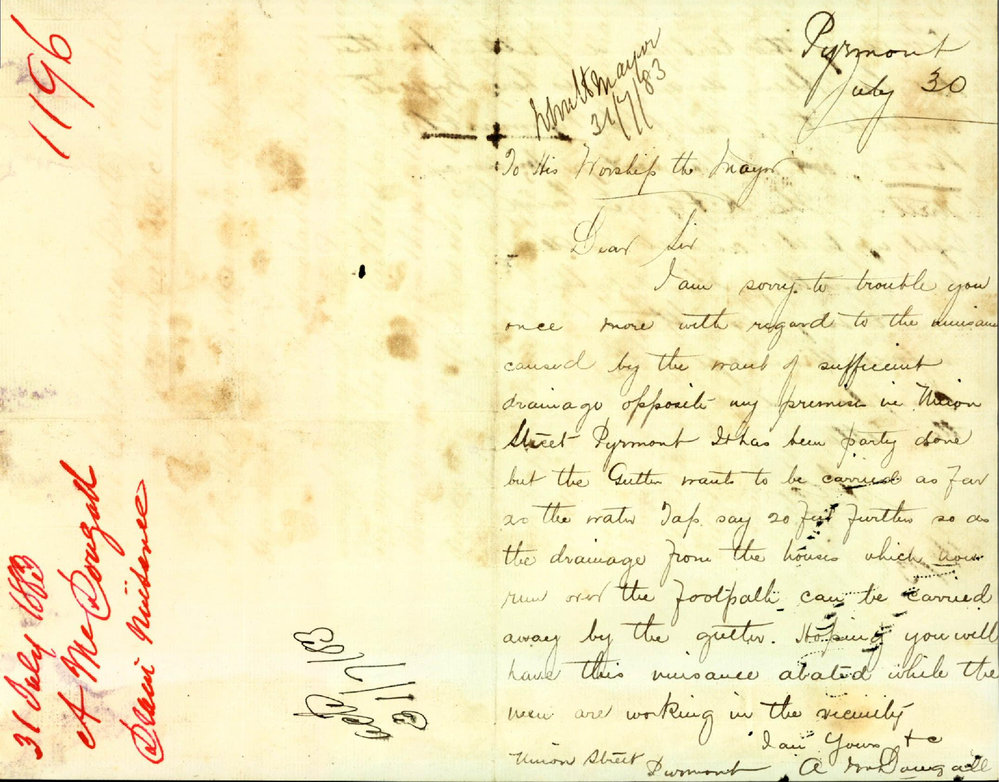 1196
31 July 1883
A McDougall
Nuisance
31/7/83
Pyrmont
July 30
Mayor
31/7/83
To His Worship the Mayor
Dear Sir
I am sorry to trouble you
once more with regard to the nuisance
caused by the want of sufficient
drainage opposite my premise in Union
Street Pyrmont It has been party done
but the Gutter wants to be carried as far
as the water Tap say 20 feet further so as
the drainage from the houses which now
run over the Footpath can be carried
away by the gutter. Hoping you will
have this nuisance abated while the
men are working in the vicinity
I am Yours &c
Union Street Pyrmont A McDougall